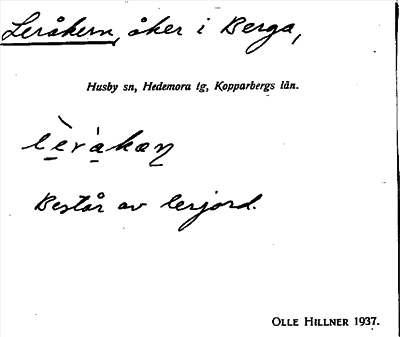 Leråkern, åker i Berga,
Husby sn, Hedemora tg, Kopparbergs län.
lèr̀akan
Består av lerjord.
OLLE HILLNER 1937.